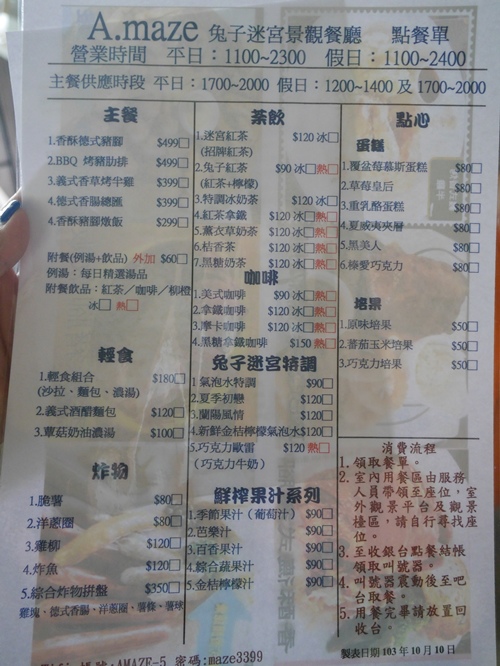 A.maze 兔子迷宮景觀餐廳 點餐單
營業時間 平日：1100~2300 假日：1100~2400
主餐供應時段 平日：1700~2000 假日：1200~1400 及 1700~2000
主餐
1.香酥德式豬腳 $499□
2.BBQ 烤豬肋排 $499□
3.義式香草烤牛雞 $399□
4.德式香腸總匯 $399□
4.香酥豬腳燉飯 $299□
附餐(例湯+飲品) 外加 $60□
例湯：每日精選湯品
附餐飲品：紅茶／咖啡／柳橙
冰□ 熱□
輕食
1.輕食組合 $180□
(沙拉、麵包、濃湯)
2.義式酒醋麵包 $120□
3.蕈菇奶油濃湯 $100□
炸物
1.脆薯 $80□
2.洋蔥圈 $80□
3.雞柳 $120□
4.炸魚 $120□
5.綜合炸物拼盤 $350□
雞塊、德式香腸、洋蔥圈、薯條、薯球
茶飲
1.迷宮紅茶 $120 冰□
(招牌紅茶)
2.兔子紅茶 $90 冰□熱□
(紅茶+檸檬)
3.特調冰奶茶 $120 冰□
4.紅茶拿鐵 $120 冰□熱□
5.薰衣草奶茶 $120 冰□熱□
6.桔香茶 $120 冰□熱□
7.黑糖奶茶 $120 冰□熱□
咖啡
1.美式咖啡 $90 冰□熱□
2.拿鐵咖啡 $120 冰□熱□
3.摩卡咖啡 $120 冰□熱□
4.黑糖拿鐵咖啡 $150 熱□
兔子迷宮特調
1 氣泡水特調 $90□
2.夏季初戀 $120□
3.蘭陽風情 $120□
4.新鮮金桔檸檬氣泡水$120□
5.巧克力歐蕾 $120 熱□
(巧克力牛奶)
鮮榨果汁系列
1.季節果汁（葡萄汁） $90□
2.芭樂汁 $90□
3.百香果汁 $90□
4.綜合蔬果汁 $90□
5.金桔檸檬汁 $90□
點心
蛋糕
1.覆盆莓慕斯蛋糕 $80□
2.草莓皇后 $80□
3.重乳酪蛋糕 $80□
4.夏威夷夾層 $80□
5.黑美人 $80□
6.極愛巧克力 $80□
培果
1.原味培果 $50□
2.蕃茄玉米培果 $50□
3.巧克力培果 $50□
消費流程
1.領取餐單。
2.室內用餐區由服務
人員帶領至座位，室
外觀景平台及觀景
檯區，請自行尋找座
位。
3.至收銀台點餐結帳
領取叫號器。
4.叫號器震動後至吧
台取餐。
5.用餐完畢請放置回
收台。
製表日期 103 年 10 月 10 日
帳號:AMAZE-5 密碼:maze3399